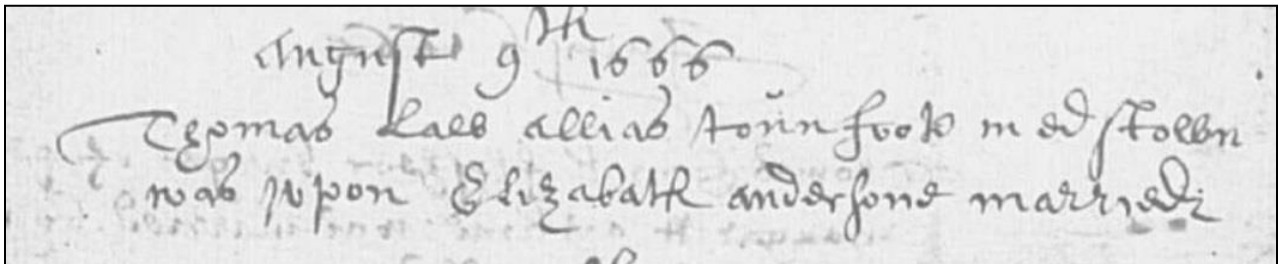 August 9th 1666
Thomas Laes allias tounfoots in edstown
was wpon Elizabath andersone married